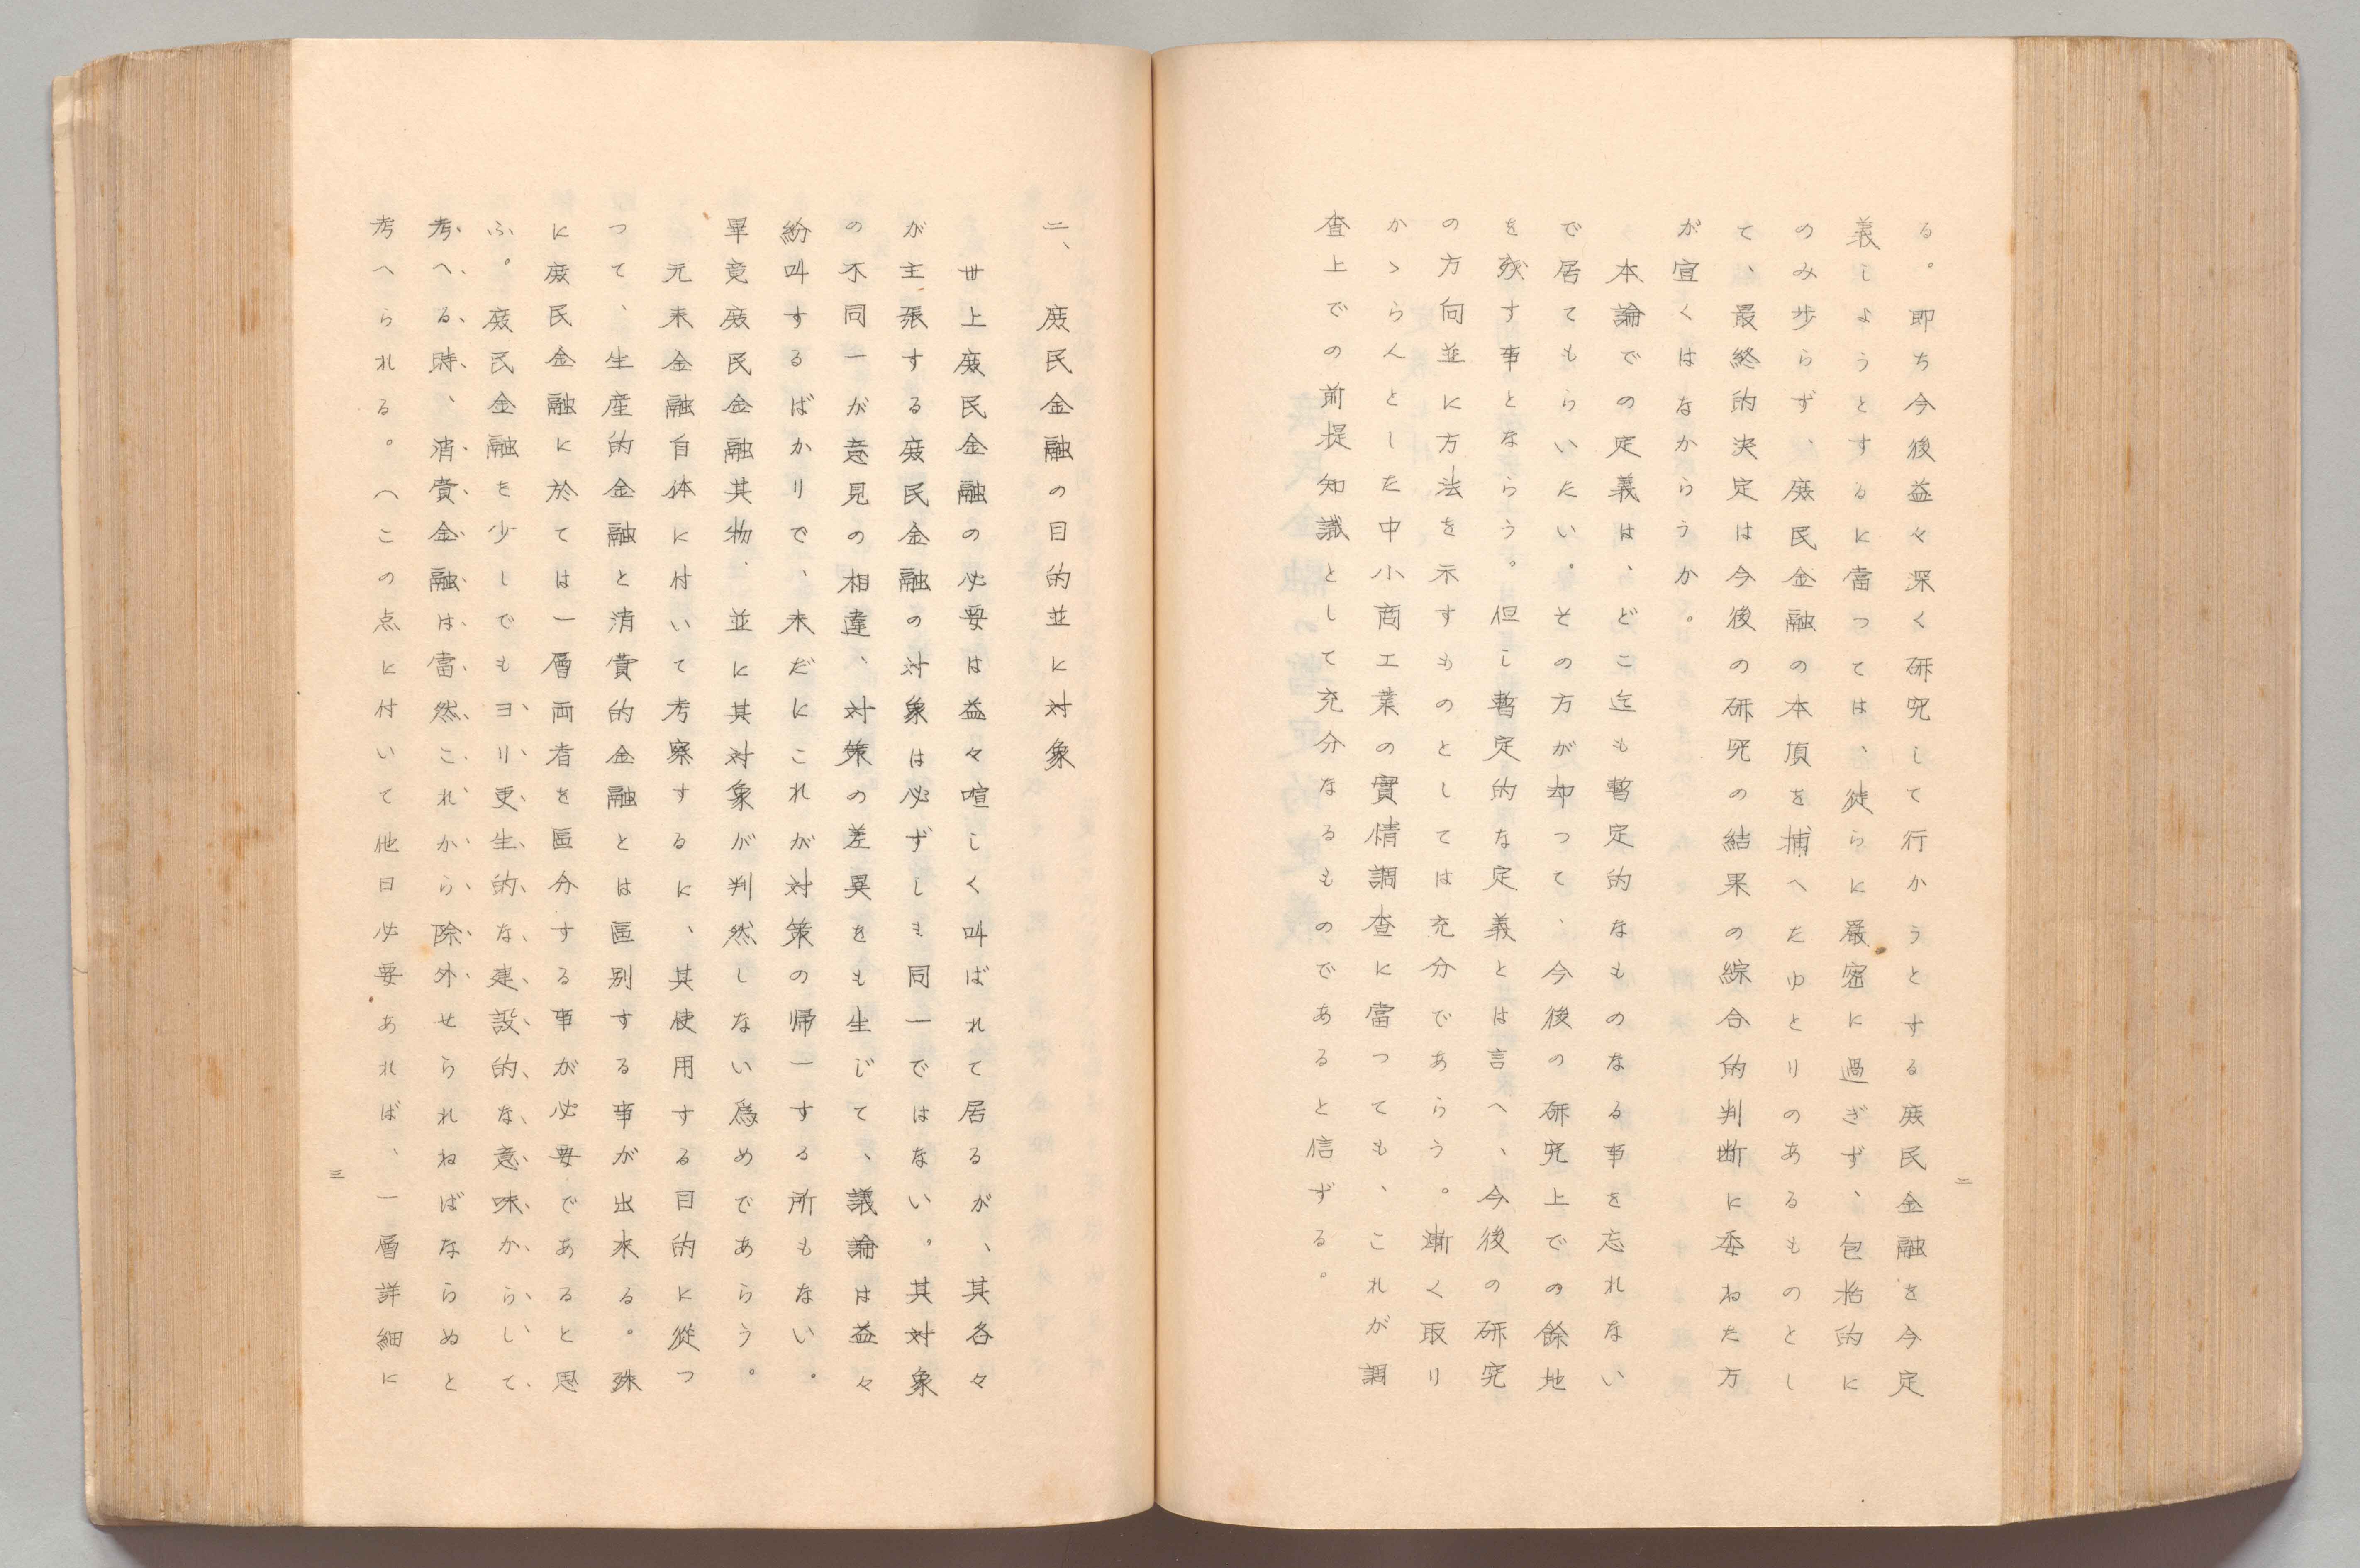 る。即ち今後益々深く研究して行かうとする庶民金融を今定
義しようとするに當つては、徒らに厳密に過ぎず、包括的に
のみ歩らず、庶民金融の本項を捕へたゆとりのあるものとし
て、最終的決定は今後の研究の結果の綜合的判断に委ねた方
が宜くはなからうか。
本論での定義は、どこ迄も暫定的なものなる事を忘れない
で居てもらいたい。その方が却つて、今後の研究上での餘地
を残す事とならう。但し暫定的な定義とは言へ、今後の研究
の方向並に方法を示すものとしては充分であらう。漸く取り
かゝらんとした中小商工業の實情調査に當つても、これが調
査上での前提知識として充分なるものであると信ずる。
二
二、庶民金融の目的並に対象
世上庶民金融の必要は益々喧しく叫ばれて居るが、其各々
が主張する庶民金融の対象は必ずしも同一ではない。其対象
の不同一が意見の相違、対策の差異をも生じて、議論は益々
紛叫するばかりで、未だにこれが対策の帰一する所もない。
畢竟庶民金融其物、並に其対象が判然しない爲めであらう。
元来金融自体に付いて考察するに、其使用する目的に從つ
つて、生産的金融と消費的金融とは區別する事が出来る。殊
に庶民金融に於ては一層両者を區分する事が必要であると思
ふ。庶民金融を少しでもヨリ更生的な建設的な意味からして
考へる時、消費金融は當然これから除外せられねばならぬと
考へられる。（この点に付いて他日必要あれば、一層詳細に
三